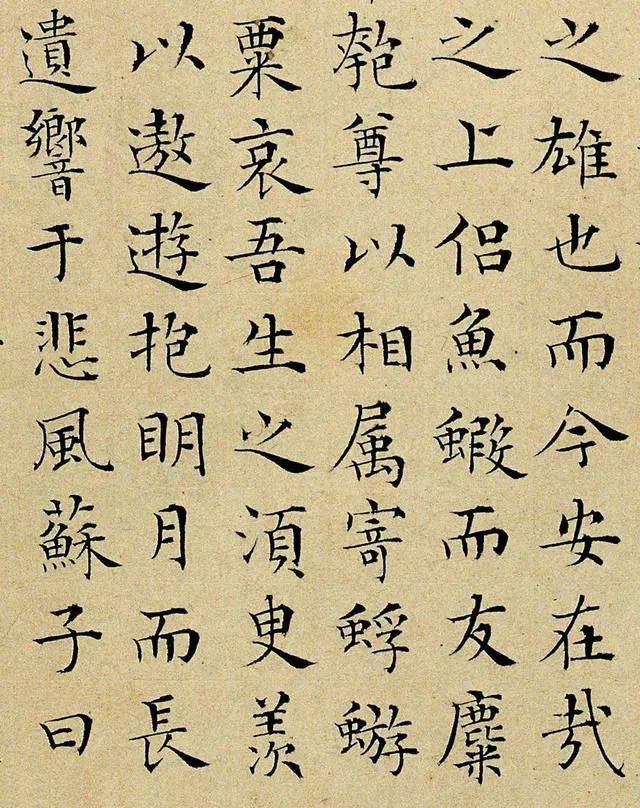 之雄也而今安在哉
之上侣魚蝦而友麋
匏尊以相属寄蜉蝣
粟哀吾生之湏臾羨
以遨遊抱明月而長
遺響于悲風蘇子曰